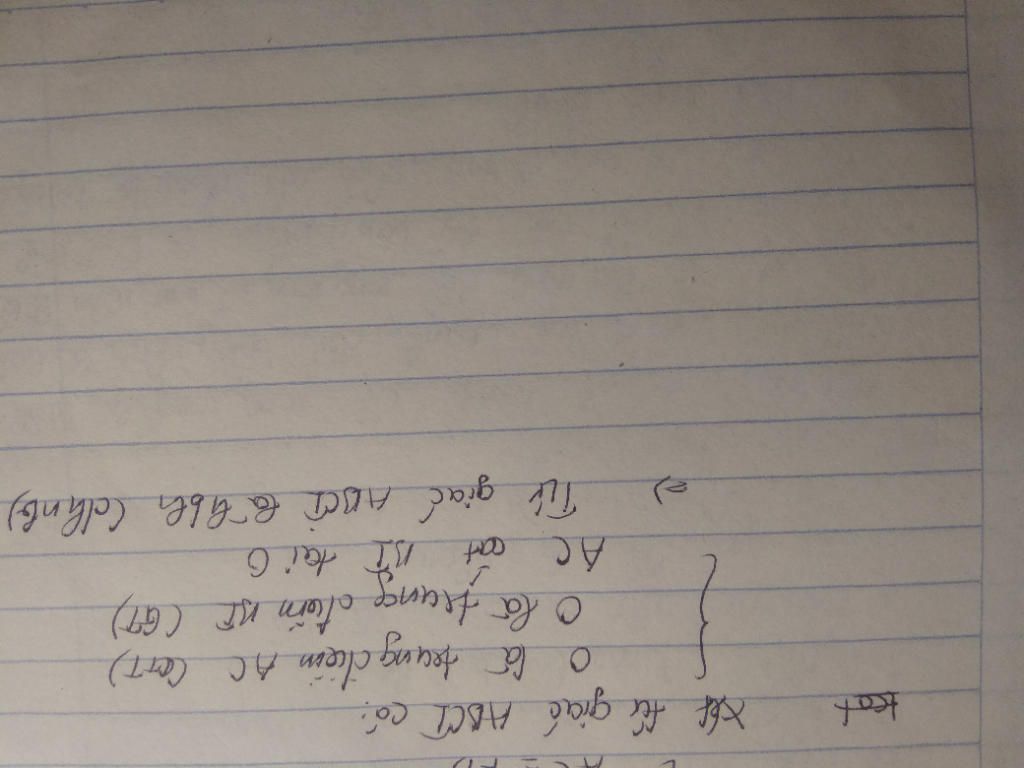 Xét tứ giác ABCI có:
O là trung điểm AC (GT)
O là trung điểm BI (GT)
AC cắt BI tại O
=> Tứ giác ABCI là hbh (dhnb)